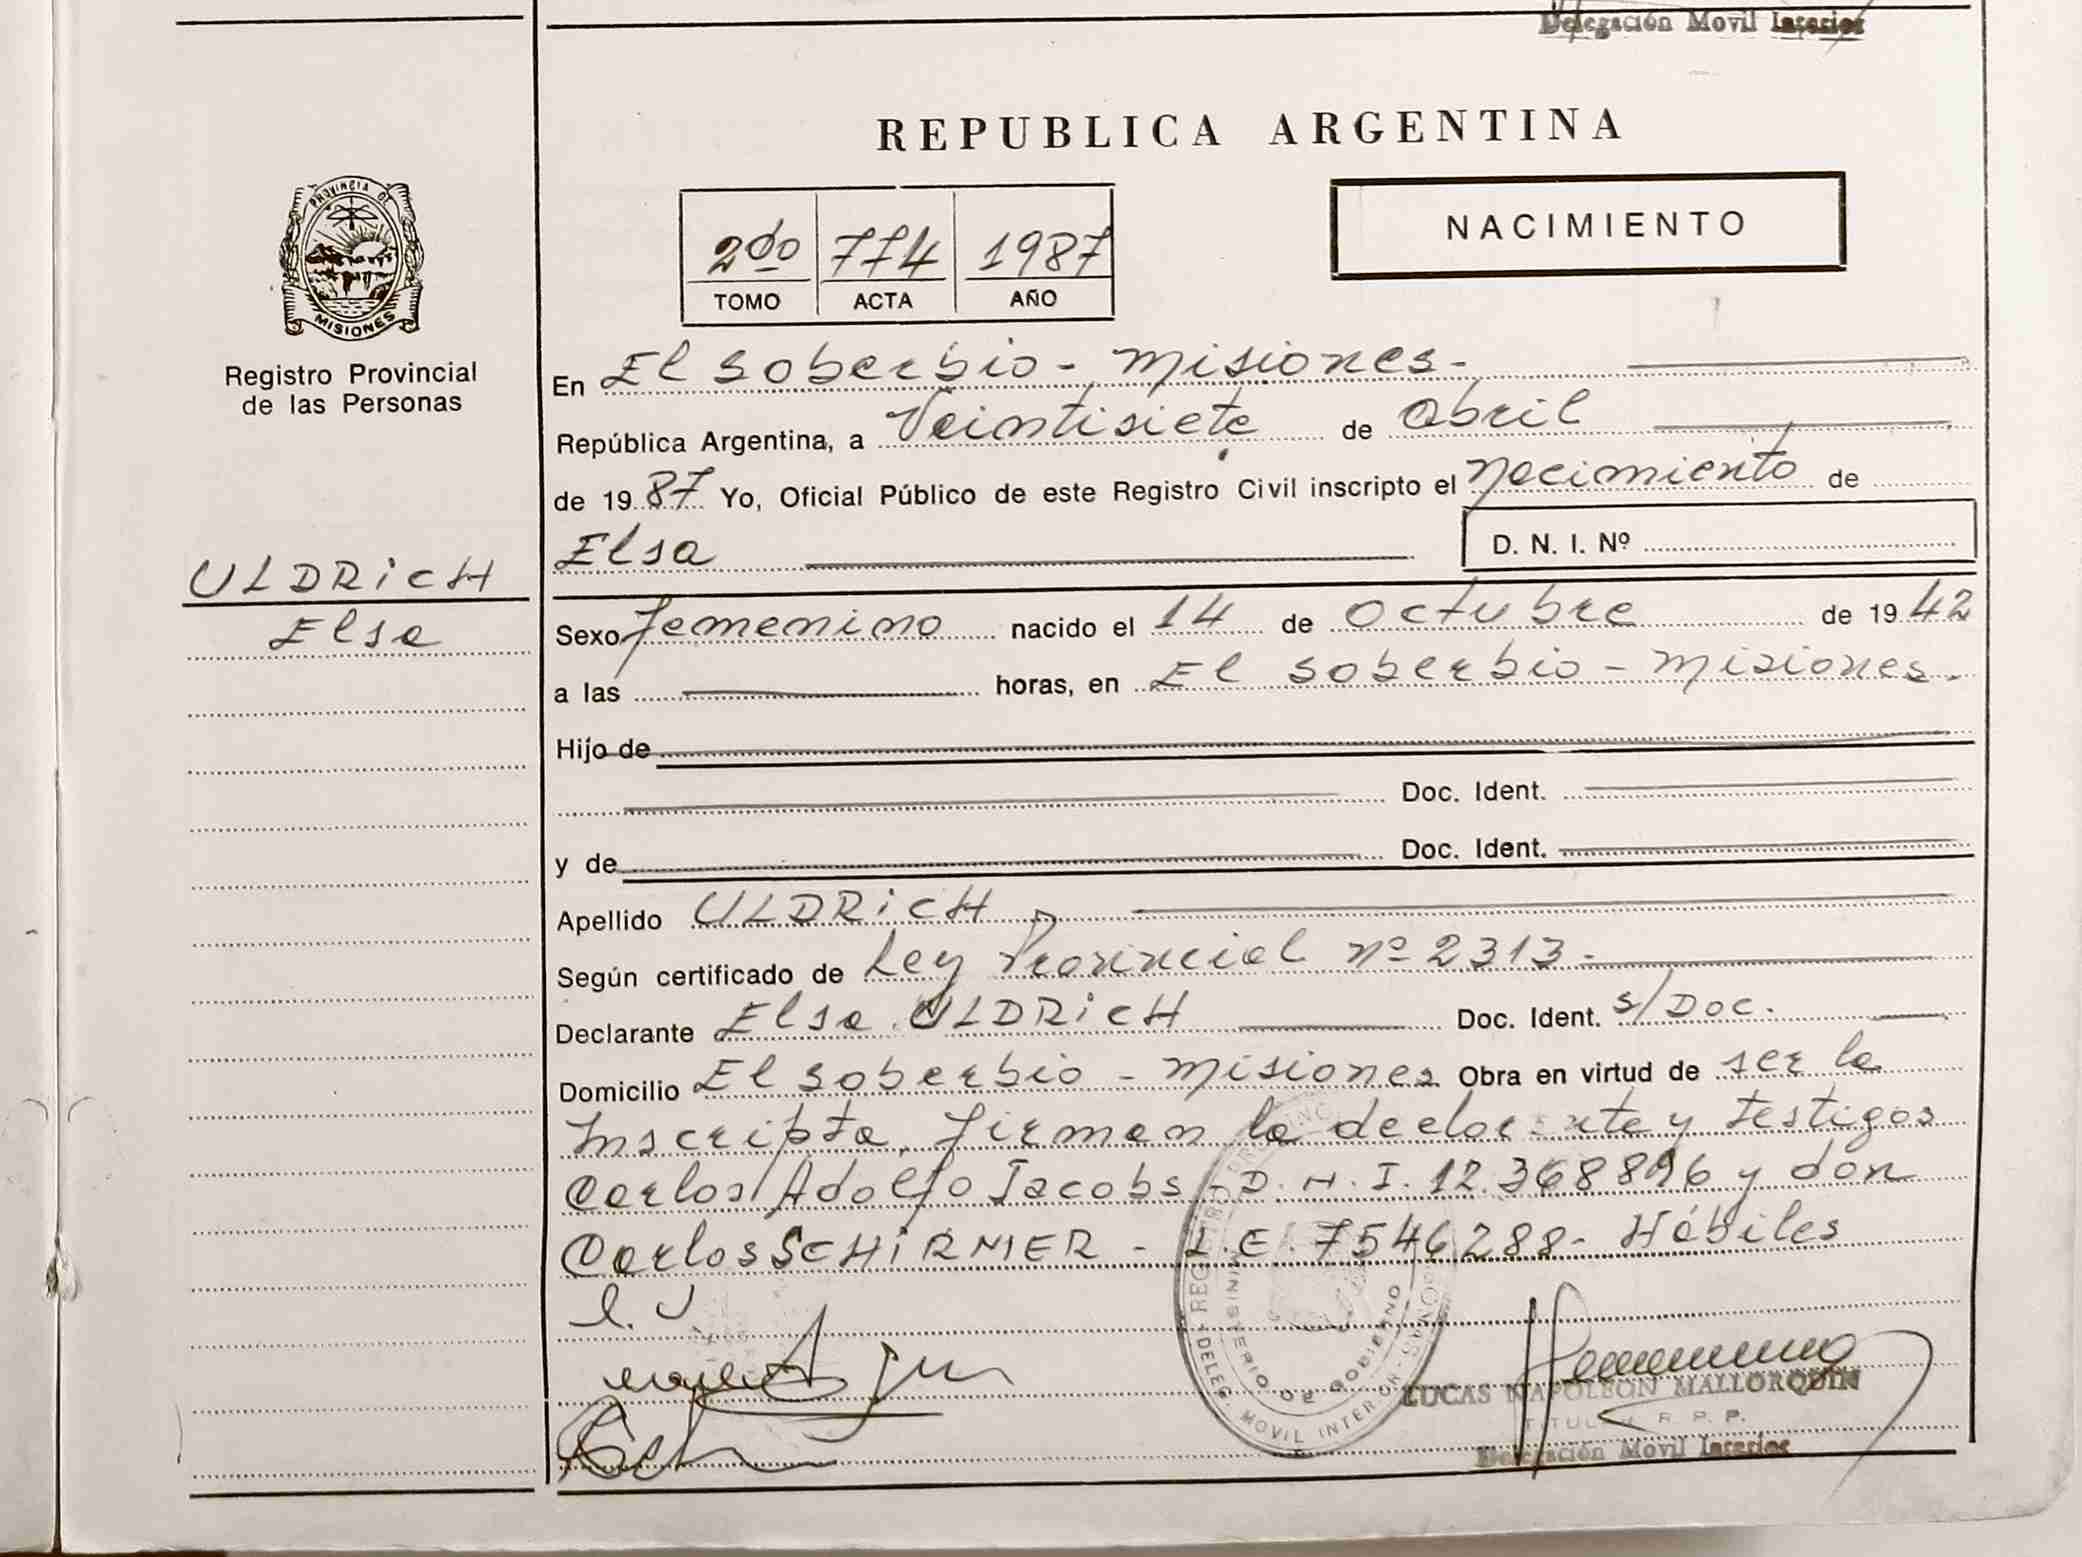 Delegación Movil Interior
REPUBLICA ARGENTINA
PROVINCIA DE
MISIONES
Registro Provincial
de las Personas
2do 774 1987
TOMO ACTA AÑO
NACIMIENTO
En El Soberbio - Misiones -
República Argentina, a Veintisiete de abril
de 1987 Yo, Oficial Público de este Registro Civil inscripto el Nacimiento de
Elsa D. N. I. Nº
ULDRiCH
Elsa
Sexo femenino nacido el 14 de octubre de 1942
a las horas, en El Soberbio - Misiones.
Hijo de
Doc. Ident.
y de Doc. Ident.
Apellido ULDRiCH
Según certificado de Ley Provincial nº 2313 -
Declarante Elsa ULDRiCH Doc. Ident. s/Doc.
Domicilio El Soberbio - Misiones Obra en virtud de ser la
Inscripta. Firman la declarante y testigos
Carlos Adolfo Jacobs - D.N.I. 12.368896 y don
Carlos SCHiRMER - L.E. 7546288 - Hábiles
REGISTRO PROVINCIAL
MINISTERIO DE GOBIERNO
DELEG. MOVIL INTERIOR
LUCAS NAPOLEON MALLORQUIN
TITULAR R. P. P.
Delegación Movil Interior